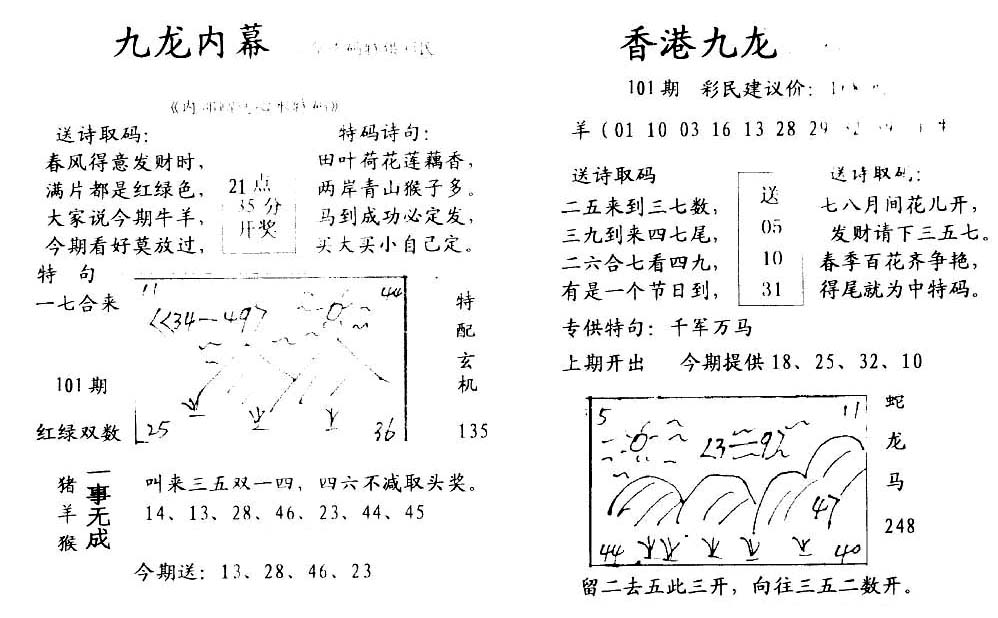 九龙内幕
送诗取码:
春风得意发财时,
满片都是红绿色,
大家说今期牛羊,
今期看好莫放过,
21点
35分
开奖
特码诗句:
田叶荷花莲藕香,
两岸青山猴子多。
马到成功必定发,
买大买小自己定。
特 句
一七合来
101期
红绿双数
11
44
<<34—49>
25
36
特
配
玄
机
135
猪
羊
猴
一事无成
叫来三五双一四, 四六不减取头奖。
14、13、28、46、23、44、45
今期送: 13、28、46、23
香港九龙
101期 彩民建议价:
羊(01 10 03 16 13 28 29
送诗取码
二五来到三七数,
三九到来四七尾,
二六合七看四九,
有是一个节日到,
送
05
10
31
送诗取码:
七八月间花儿开,
发财请下三五七。
春季百花齐争艳,
得尾就为中特码。
专供特句: 千军万马
上期开出 今期提供18、25、32、10
5
11
47
44
40
蛇
龙
马
248
留二去五此三开, 向往三五二数开。